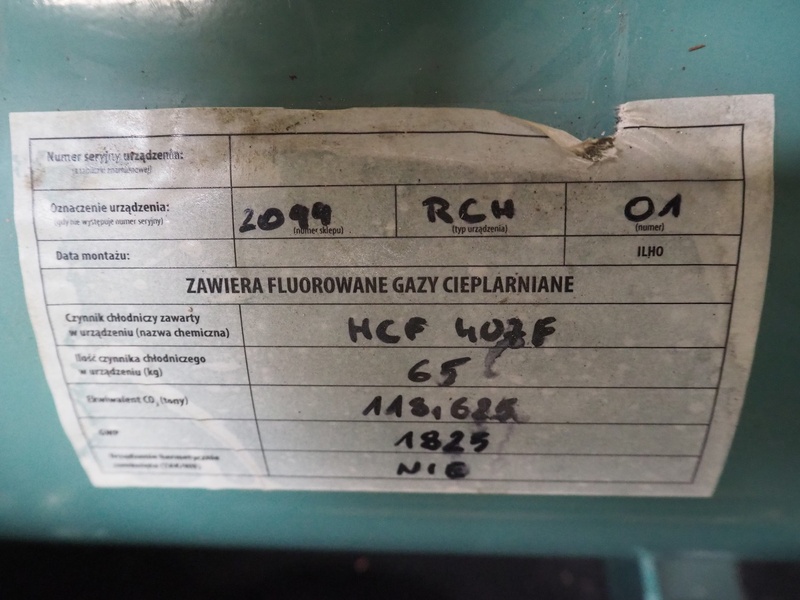 Numer seryjny urządzenia:
(z tabliczki znamionowej)
Oznaczenie urządzenia: 2099 RCH 01
(gdy nie występuje numer seryjny) (numer sklepu) (typ urządzenia) (numer)
Data montażu: ILHO
ZAWIERA FLUOROWANE GAZY CIEPLARNIANE
Czynnik chłodniczy zawarty
w urządzeniu (nazwa chemiczna) HCF 407F
Ilość czynnika chłodniczego
w urządzeniu (kg) 65
Ekwiwalent CO₂ (tony) 118,625
GWP 1825
Urządzenie hermetycznie
zamknięte (TAK/NIE) NIE